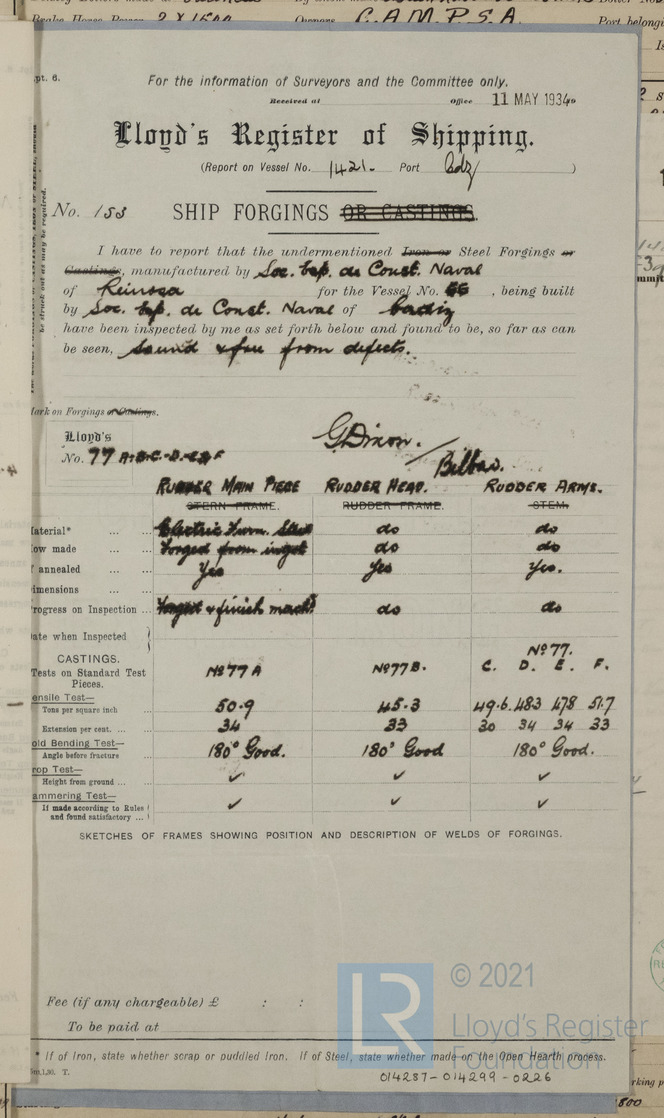 2 X 1500
Owners C.A.M.P.S.A.
Port belongi
pt. 6.
For the information of Surveyors and the Committee only.
Received at Office 11 MAY 1934
Lloyd's Register of Shipping.
(Report on Vessel No. 1421. Port Cdz )
No. 153 SHIP FORGINGS OR CASTINGS.
I have to report that the undermentioned Iron or Steel Forgings or
Castings, manufactured by Soc. Esp. de Const. Naval
of Reinosa for the Vessel No. 66, being built
by Soc. Esp. de Const. Naval of Cadiz
have been inspected by me as set forth below and found to be, so far as can
be seen, sound & free from defects.
Mark on Forgings or Castings.
Lloyd's
No. 77 A-B-C-D-E&F
G. Dixon.
Bilbao.
RUDDER MAIN PIECE RUDDER HEAD. RUDDER ARMS.
STERN FRAME. RUDDER FRAME. STEM.
aterial* Electric Furn. Steel do do
ow made Forged from ingot do do
f annealed Yes Yes Yes.
imensions
rogress on Inspection Forged & finish mach'd do do
ate when Inspected
CASTINGS. No 77.
Tests on Standard Test Pieces. No 77 A No 77 B. C. D. E. F.
ensile Test—
Tons per square inch 50.9 45.3 49.6 48.3 47.8 51.7
Extension per cent. 34 33 30 34 34 33
old Bending Test—
Angle before fracture 180° Good. 180° Good 180° Good.
rop Test—
Height from ground ✓ ✓ ✓
ammering Test—
If made according to Rules and found satisfactory ✓ ✓ ✓
SKETCHES OF FRAMES SHOWING POSITION AND DESCRIPTION OF WELDS OF FORGINGS.
Fee (if any chargeable) £ : :
To be paid at
* If of Iron, state whether scrap or puddled Iron. If of Steel, state whether made on the Open Hearth process.
LR
© 2021
Lloyd's Register
Foundation
014287-014299-0226